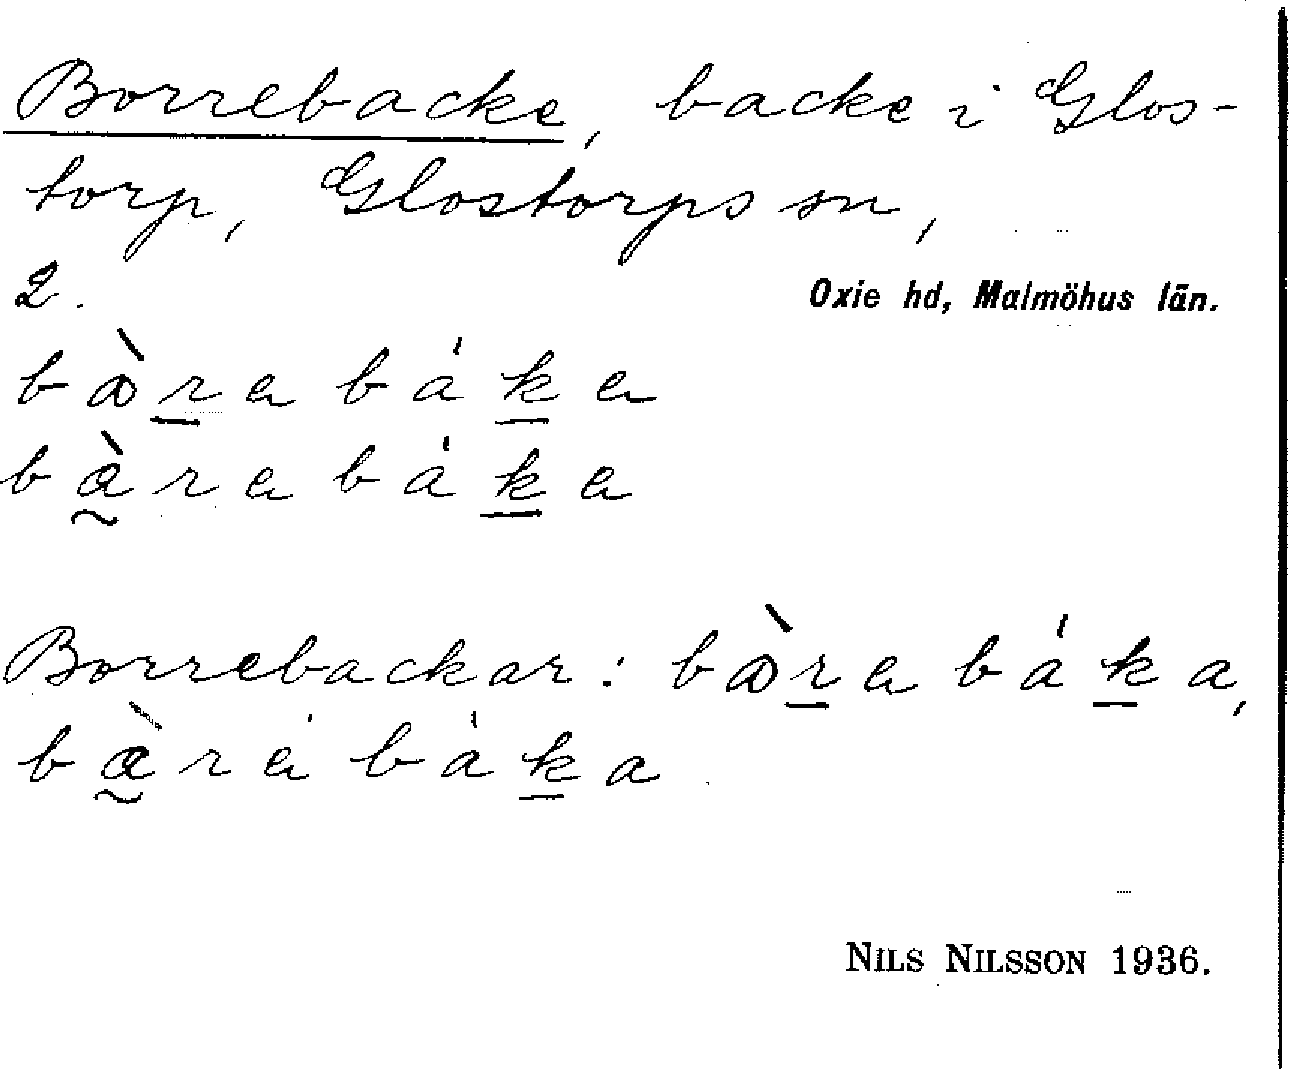 Borrebacke, backe i Glos-
torp, Glostorps sn,
2.
Oxie hd, Malmöhus län.
bòrebáke
bàrebáke
Borrebackar: bòrebáka,
bàrebáka
NILS NILSSON 1936.